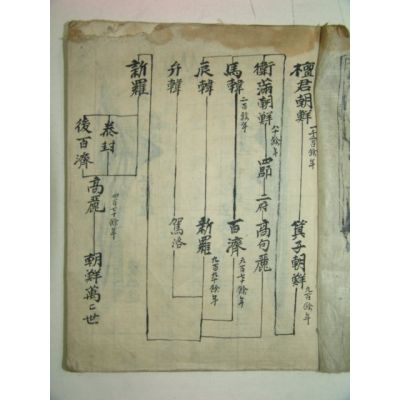 檀君朝鮮 一千二百餘年 箕子朝鮮 九百餘年
衛滿朝鮮 八十餘年 四郡 二府 高句麗
馬韓 二百餘年 百濟 六百七十餘年
辰韓 新羅 九百九十餘年
弁韓 駕洛
新羅
泰封 高麗 四百七十餘年 朝鮮萬々世
後百濟